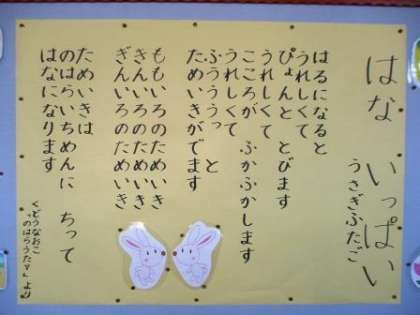 はな いっぱい
うさぎふたご
はるになると
うれしくて
ぴょんと とびます
うれしくて
こころが ふかふかします
うれしくて
ふううっ と
ためいきがでます
ももいろのためいき
きんいろのためいき
ぎんいろのためいき
ためいきは
のはらいちめんに ちって
はなになります
くどうなおこ
『のはらうたⅤ』より